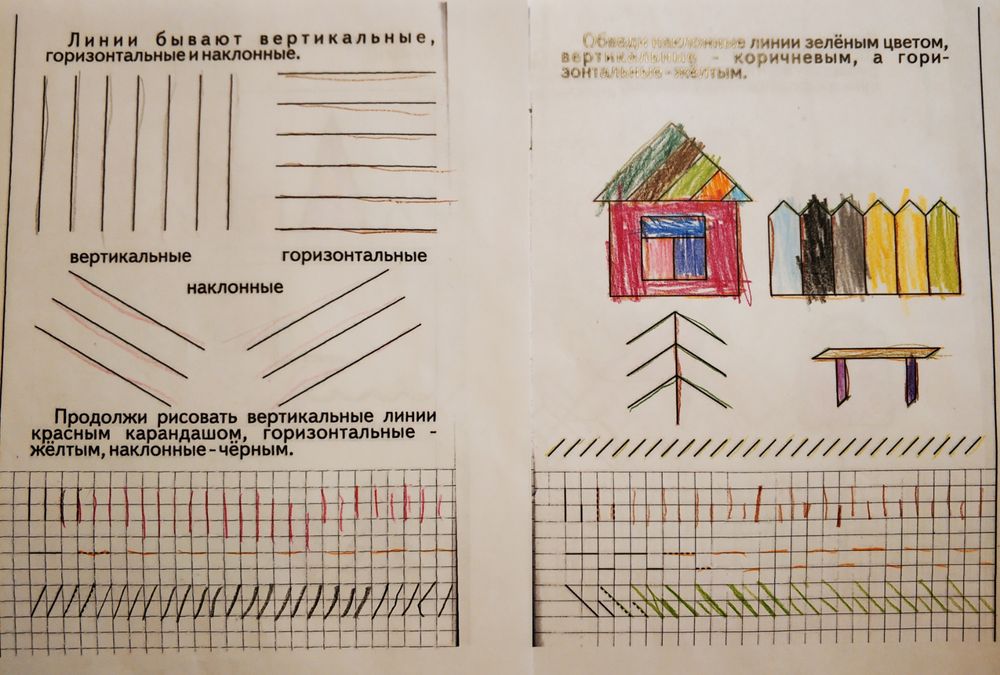 Линии бывают вертикальные,
горизонтальные и наклонные.
вертикальные
горизонтальные
наклонные
Продолжи рисовать вертикальные линии
красным карандашом, горизонтальные -
жёлтым, наклонные - чёрным.
Обведи наклонные линии зелёным цветом,
вертикальные - коричневым, а гори-
зонтальные - жёлтым.